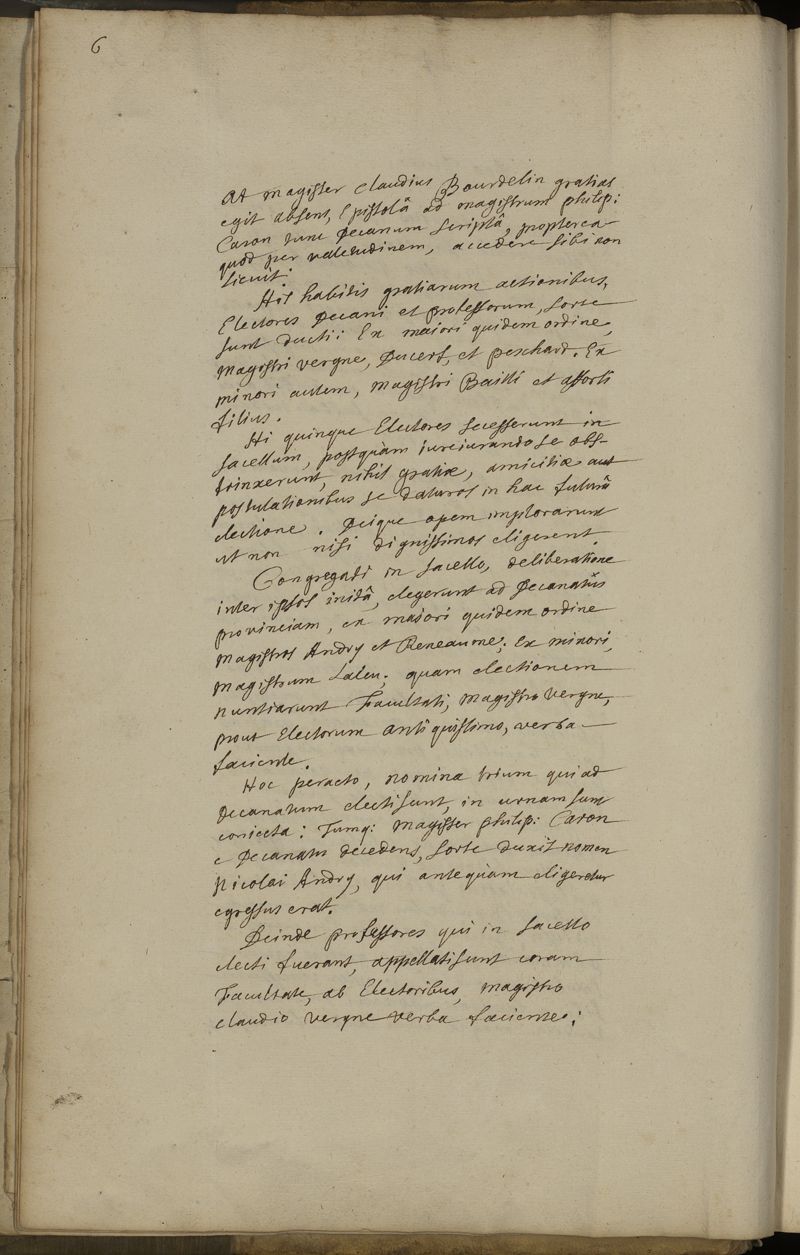 6
At magister Claudius Bourdelin gratias
egit absens, Epistolâ ad magistrum philip:
Caron tunc Decanum scriptâ, propterea
quod per valetudinem, accedere sibi non
licuit.
His habitis gratiarum actionibus,
Electores Decani et professorum, sorte
sunt ducti: Ex maiori quidem ordine,
magistri vergne, Ducerf, et peschard. Ex
minori autem, magistri Bailli et afforti
filius.
Hi quinque Electores secesserunt in
sacellum, postquàm iureiurando se obs-
trinxerunt, nihil gratiæ, amicitiæ aut
postulationibus se daturos in hac futurâ
electione. Deique opem implorarunt
ut non nisi dignissimos eligerent.
Congregati in sacello, deliberatione
inter ipsos initâ, elegerunt ad Decanatûs
provinciam, ex maiori quidem ordine
magistros Andry et Reneaume; Ex minori,
magistrum Laleu; quam electionem
nuntiarunt Facultati, magistro vergne,
prout Electorum antiquissimo, verba
faciente.
Hoc peracto, nomina trium qui ad
Decanatum electi sunt, in urnam sunt
coniecta: Tumq: magister philip: Caron
e Decanatu decedens, sorte duxit nomen
Nicolai Andry, qui antequàm eligeretur
egressus erat.
Deinde professores qui in sacello
electi fuerant, appellati sunt coram
Facultate, ab Electoribus, magistro
claudio vergne verba faciente;